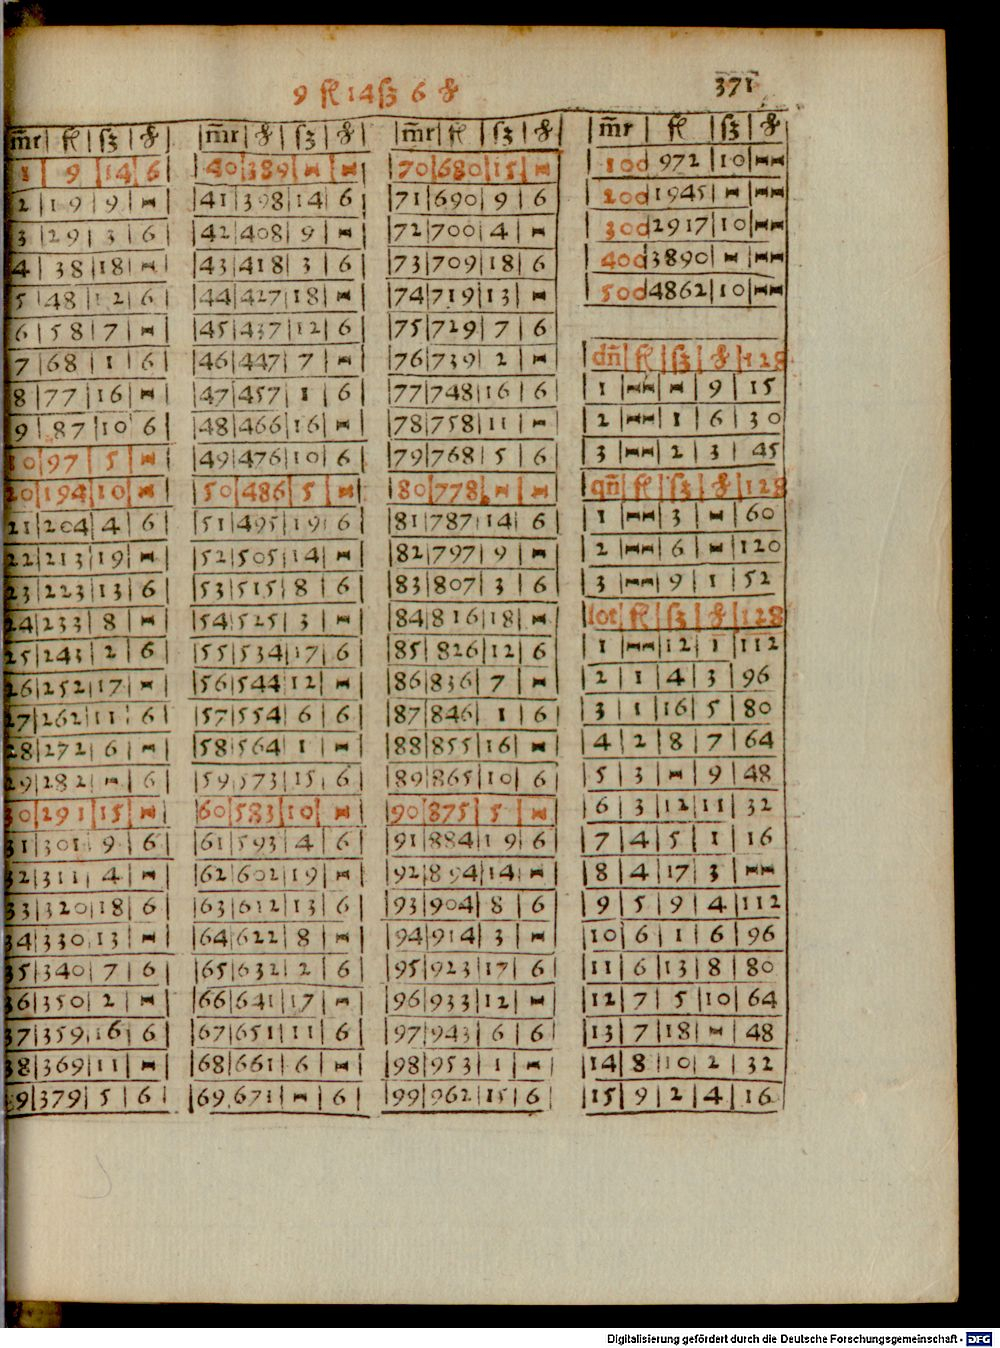 9 fl 14 ß 6 ₰
371
m̄r fl ß ₰
1 9 14 6
2 19 9 -
3 29 3 6
4 38 18 -
5 48 12 6
6 58 7 -
7 68 1 6
8 77 16 -
9 87 10 6
10 97 5 -
20 194 10 -
21 204 4 6
22 213 19 -
23 223 13 6
24 233 8 -
25 243 2 6
26 252 17 -
27 262 11 6
28 272 6 -
29 282 - 6
30 291 15 -
31 301 9 6
32 311 4 -
33 320 18 6
34 330 13 -
35 340 7 6
36 350 2 -
37 359 16 6
38 369 11 -
39 379 5 6
m̄r ₰ ß ₰
40 389 - -
41 398 14 6
42 408 9 -
43 418 3 6
44 427 18 -
45 437 12 6
46 447 7 -
47 457 1 6
48 466 16 -
49 476 10 6
50 486 5 -
51 495 19 6
52 505 14 -
53 515 8 6
54 525 3 -
55 534 17 6
56 544 12 -
57 554 6 6
58 564 1 -
59 573 15 6
60 583 10 -
61 593 4 6
62 602 19 -
63 612 13 6
64 622 8 -
65 632 2 6
66 641 17 -
67 651 11 6
68 661 6 -
69 671 - 6
m̄r fl ß ₰
70 680 15 -
71 690 9 6
72 700 4 -
73 709 18 6
74 719 13 -
75 729 7 6
76 739 2 -
77 748 16 6
78 758 11 -
79 768 5 6
80 778 - -
81 787 14 6
82 797 9 -
83 807 3 6
84 816 18 -
85 826 12 6
86 836 7 -
87 846 1 6
88 855 16 -
89 865 10 6
90 875 5 -
91 884 19 6
92 894 14 -
93 904 8 6
94 914 3 -
95 923 17 6
96 933 12 -
97 943 6 6
98 953 1 -
99 962 15 6
m̄r fl ß ₰
100 972 10 --
200 1945 - --
300 2917 10 --
400 3890 - --
500 4862 10 --
dn̄ fl ß ₰ 128
1 -- - 9 15
2 -- 1 6 30
3 -- 2 3 45
qn̄ fl ß ₰ 128
1 -- 3 - 60
2 -- 6 - 120
3 -- 9 1 52
lot fl ß ₰ 128
1 -- 12 1 112
2 1 4 3 96
3 1 16 5 80
4 2 8 7 64
5 3 - 9 48
6 3 12 11 32
7 4 5 1 16
8 4 17 3 --
9 5 9 4 112
10 6 1 6 96
11 6 13 8 80
12 7 5 10 64
13 7 18 - 48
14 8 10 2 32
15 9 2 4 16
Digitalisierung gefördert durch die Deutsche Forschungsgemeinschaft - DFG